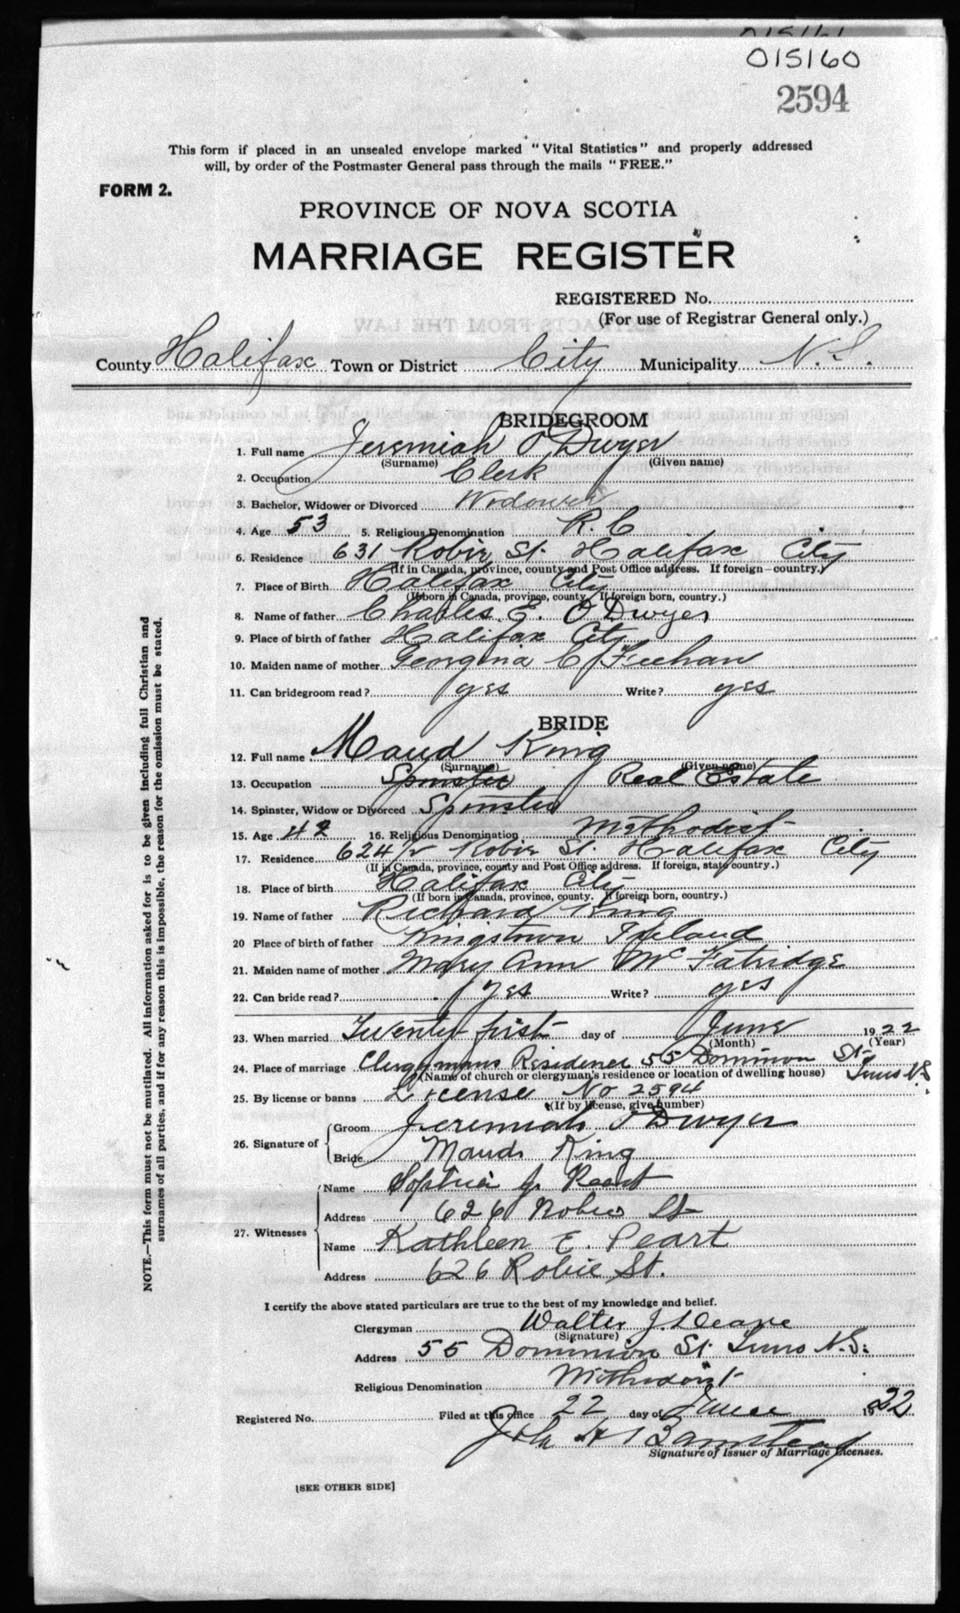 015160
2594
This form if placed in an unsealed envelope marked "Vital Statistics" and properly addressed
will, by order of the Postmaster General pass through the mails "FREE."
FORM 2.
PROVINCE OF NOVA SCOTIA
MARRIAGE REGISTER
REGISTERED No.
(For use of Registrar General only.)
County Halifax Town or District City Municipality N.S.
BRIDEGROOM
1. Full name Jeremiah O'Dwyer
(Surname) (Given name)
2. Occupation Clerk
3. Bachelor, Widower or Divorced Widower
4. Age 53 5. Religious Denomination R.C
6. Residence 631 Robie St. Halifax City
(If in Canada, province, county and Post Office address. If foreign—country.)
7. Place of Birth Halifax City
(If born in Canada, province, county. If foreign born, country.)
8. Name of father Charles E. O'Dwyer
9. Place of birth of father Halifax City
10. Maiden name of mother Georgina C Feehan
11. Can bridegroom read? yes Write? yes
BRIDE
12. Full name Maud King
(Surname) (Given name)
13. Occupation Spinster Real Estate
14. Spinster, Widow or Divorced Spinster
15. Age 16. Religious Denomination Methodist
17. Residence 624 1/2 Robie St. Halifax City
(If in Canada, province, county and Post Office address. If foreign, state country.)
18. Place of birth Halifax City
(If born in Canada, province, county. If foreign born, country.)
19. Name of father Richard King
20 Place of birth of father Kingstown Ireland
21. Maiden name of mother Mary Ann McFatridge
22. Can bride read? yes Write? yes
23. When married Twenty first day of June 1922
(Month) (Year)
24. Place of marriage Clergymans Residence 55 Dominion St. Truro N.S.
(Name of church or clergyman's residence or location of dwelling house)
25. By license or banns License No 2594
(If by license, give number)
26. Signature of
Groom Jeremiah O'Dwyer
Bride Maude King
27. Witnesses
Name Sophia J. Peart
Address 626 Robie St
Name Kathleen E. Peart
Address 626 Robie St.
I certify the above stated particulars are true to the best of my knowledge and belief.
Clergyman Walter J. Deane
(Signature)
Address 55 Dominion St. Truro N.S.
Religious Denomination Methodist
Registered No. Filed at this office 22 day of June 1922
Signature of Issuer of Marriage Licenses.
[SEE OTHER SIDE]
NOTE.—This form must not be mutilated. All information asked for is to be given including full Christian and
surnames of all parties, and if for any reason this is impossible, the reason for the omission must be stated.